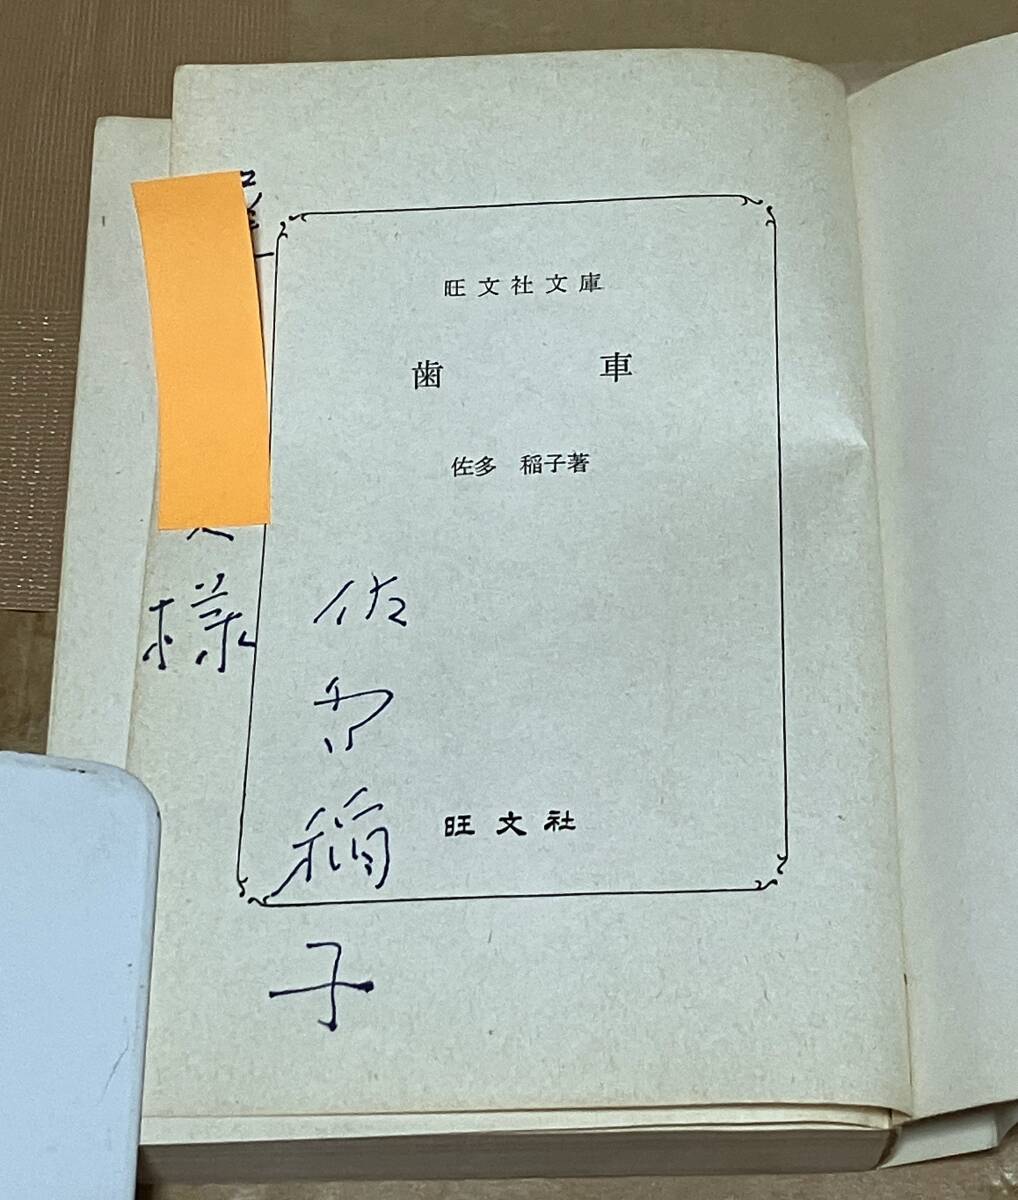 旺文社文庫
歯車
佐多 稲子著
旺文社
佐多稲子
様